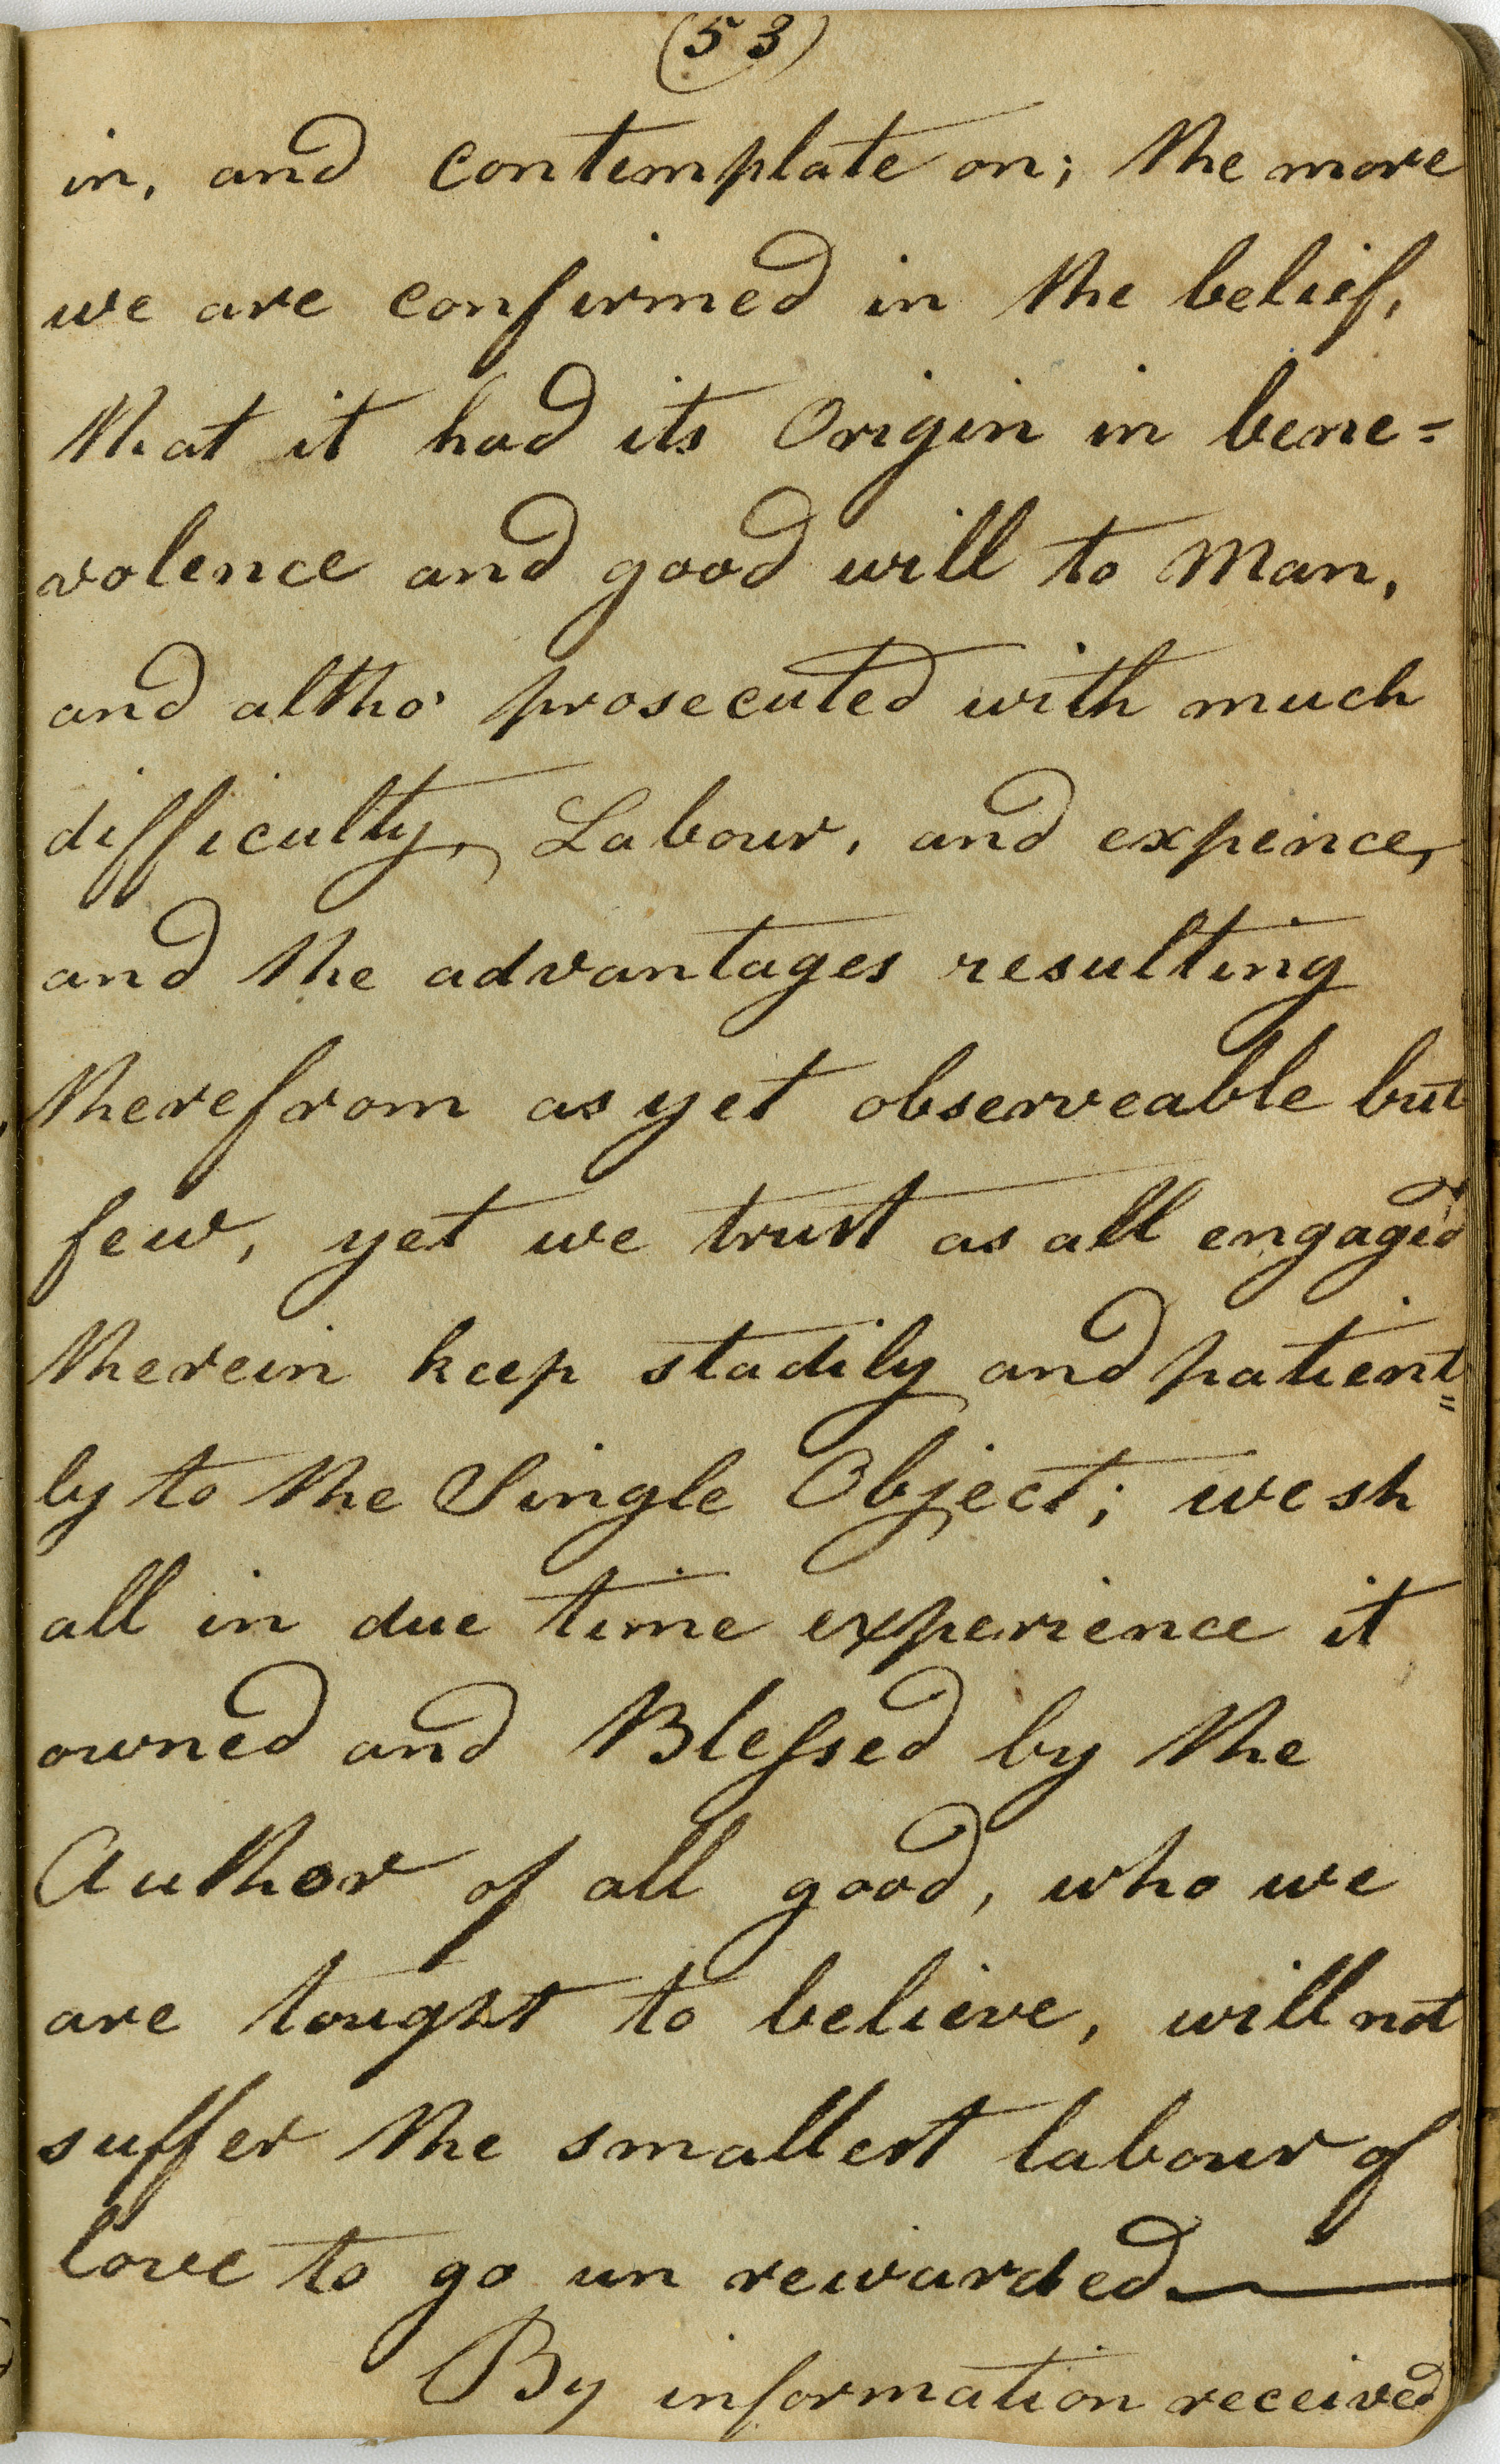 (53)
in, and contemplate on; the more
we are confirmed in the belief,
that it had its Origin in bene=
volence and good will to Man,
and altho' prosecuted with much
difficulty, Labour, and expence,
and the advantages resulting
therefrom as yet observeable but
few, yet we trust as all engaged
therein keep stadily and patient=
ly to the Single Object; we sh
all in due time experience it
owned and Blessed by the
Author of all good, who we
are tought to believe, will not
suffer the smallest labour of
love to go un rewarded
By information received